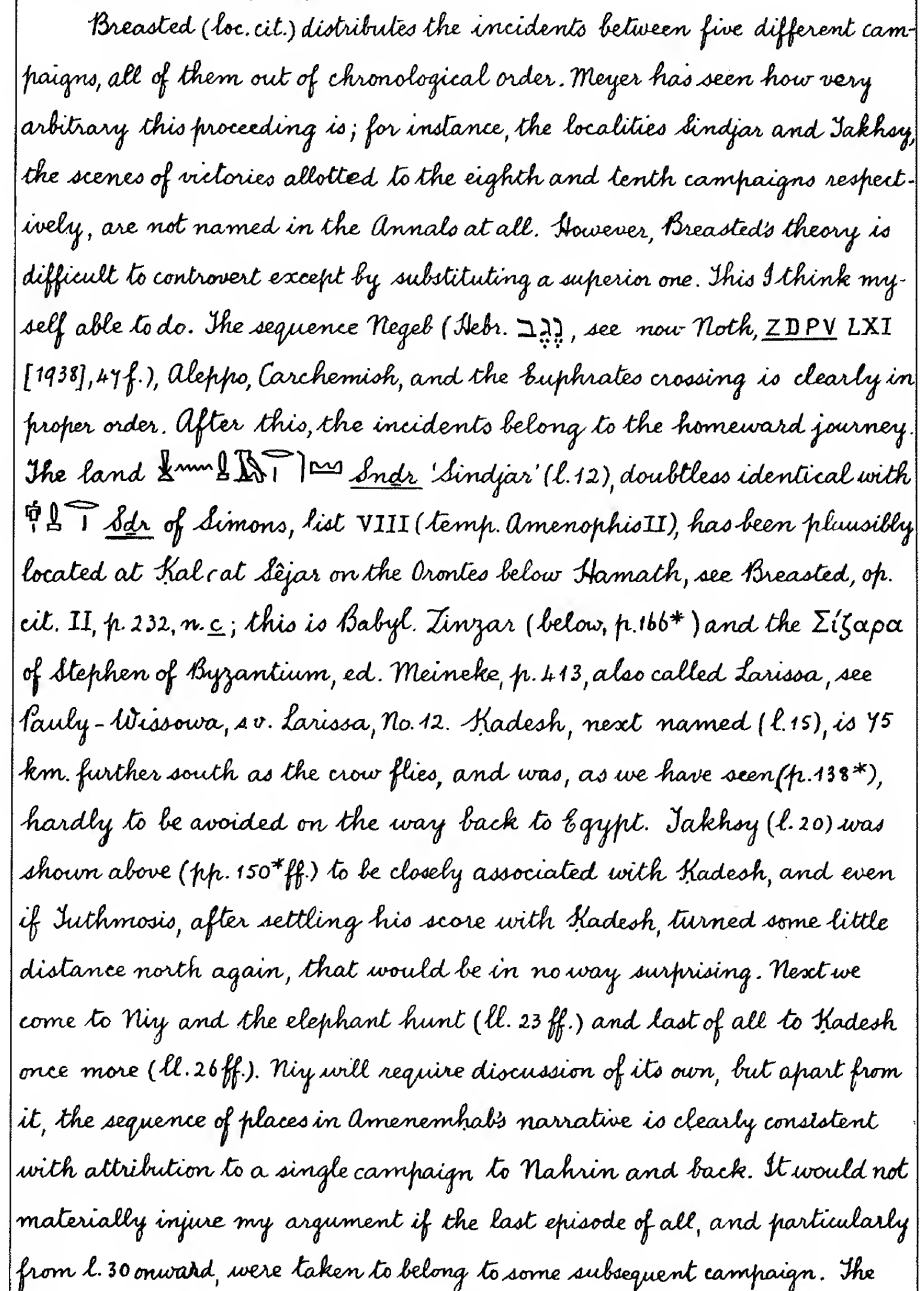 Breasted (loc. cit.) distributes the incidents between five different cam-
paigns, all of them out of chronological order. Meyer has seen how very
arbitrary this proceeding is; for instance, the localities Sindjar and Takhsy,
the scenes of victories allotted to the eighth and tenth campaigns respect-
ively, are not named in the Annals at all. However, Breasted's theory is
difficult to controvert except by substituting a superior one. This I think my-
self able to do. The sequence Negeb (Hebr. נֶגֶב, see now Noth, ZDPV LXI
[1938], 47 f.), Aleppo, Carchemish, and the Euphrates crossing is clearly in
proper order. After this, the incidents belong to the homeward journey.
The land Sndr 'Sindjar' (l. 12), doubtless identical with
Sdr of Simons, list VIII (temp. Amenophis II), has been plausibly
located at Ḳalʿat Sêjar on the Orontes below Hamath, see Breasted, op.
cit. II, p. 232, n. c; this is Babyl. Zinzar (below, p. 166*) and the Σίζαρα
of Stephen of Byzantium, ed. Meineke, p. 413, also called Larissa, see
Pauly-Wissowa, s.v. Larissa, No. 12. Ḳadesh, next named (l. 15), is 75
km. further south as the crow flies, and was, as we have seen (p. 138*),
hardly to be avoided on the way back to Egypt. Takhsy (l. 20) was
shown above (pp. 150* ff.) to be closely associated with Ḳadesh, and even
if Tuthmosis, after settling his score with Ḳadesh, turned some little
distance north again, that would be in no way surprising. Next we
come to Niy and the elephant hunt (ll. 23 ff.) and last of all to Ḳadesh
once more (ll. 26 ff.). Niy will require discussion of its own, but apart from
it, the sequence of places in Amenemḥab's narrative is clearly consistent
with attribution to a single campaign to Nahrin and back. It would not
materially injure my argument if the last episode of all, and particularly
from l. 30 onward, were taken to belong to some subsequent campaign. The